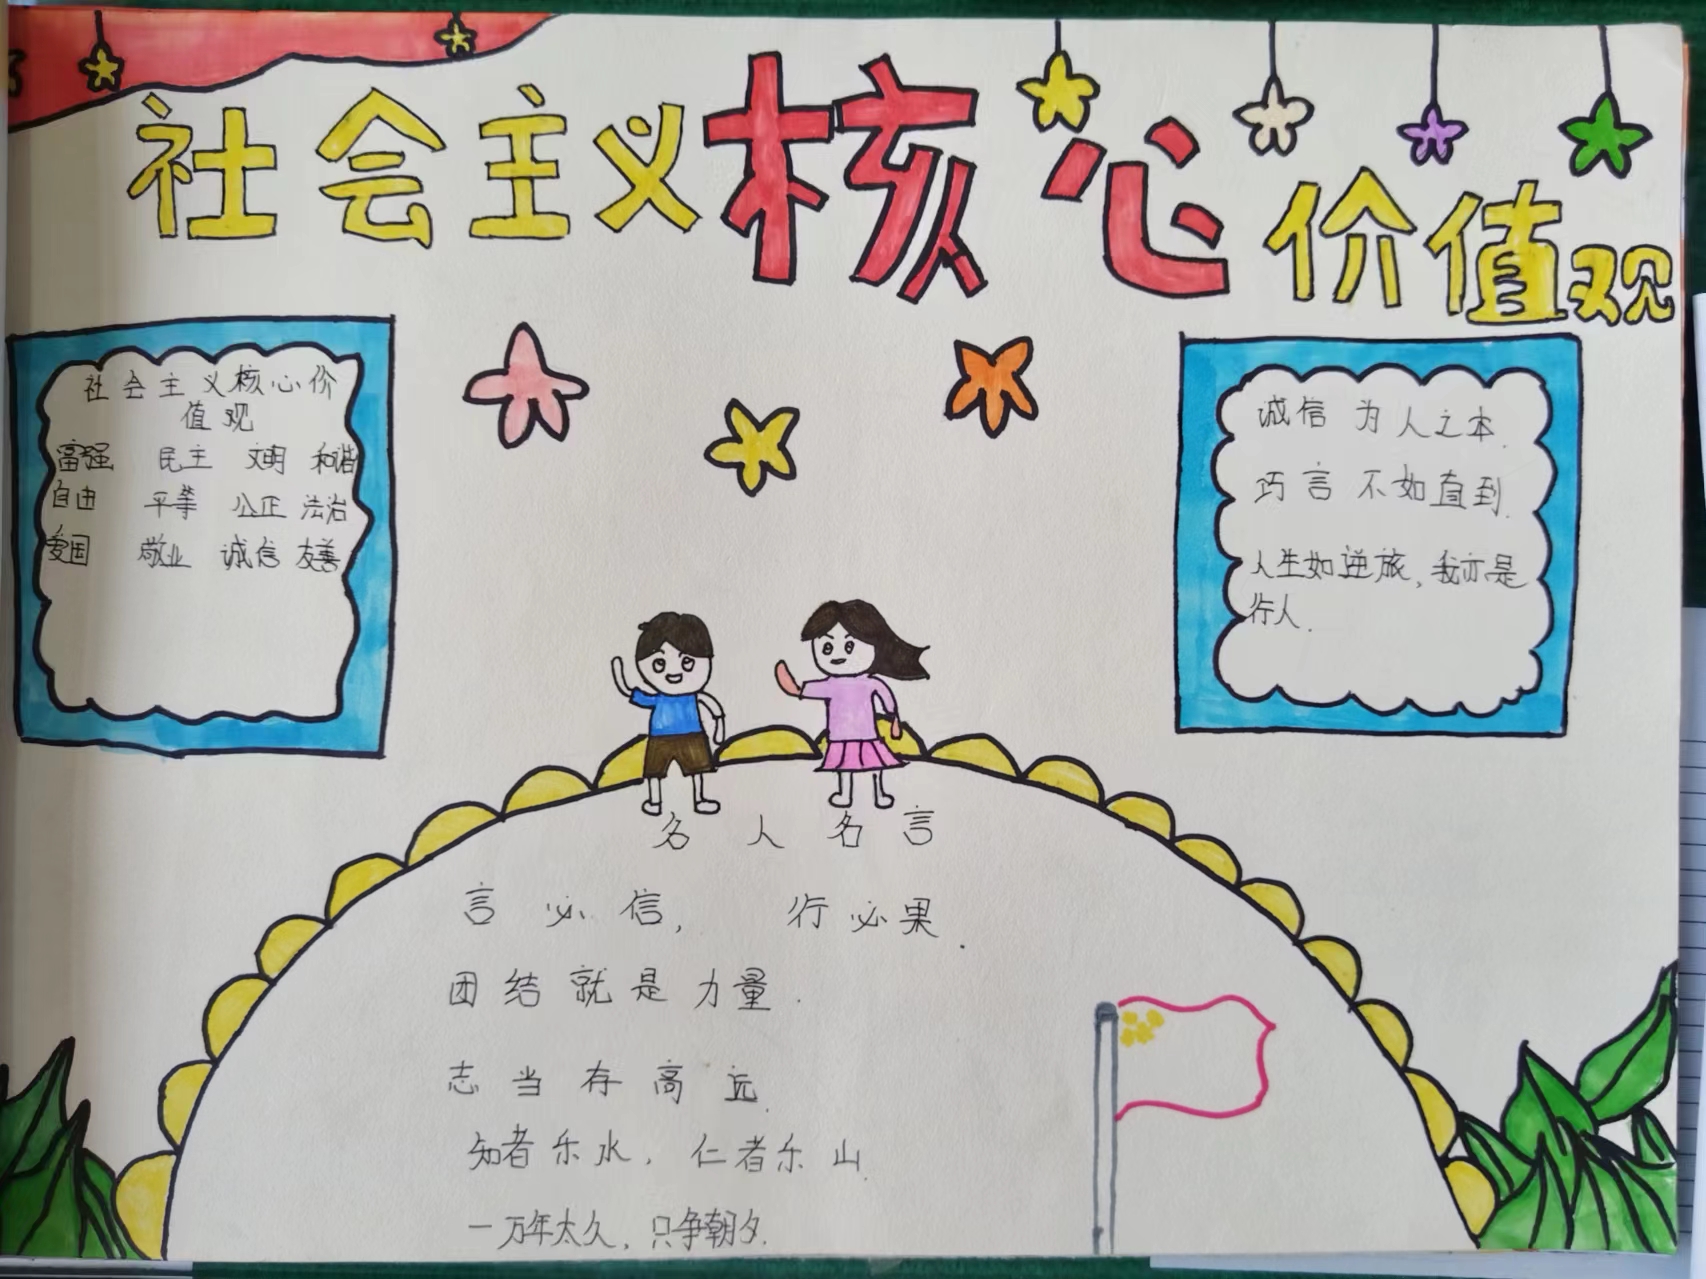 社会主义核心价值观
社会主义核心价
值观
富强 民主 文明 和谐
自由 平等 公正 法治
爱国 敬业 诚信 友善
诚信为人之本.
巧言不如直到.
人生如逆旅,我亦是
行人.
名人名言
言必信, 行必果.
团结就是力量.
志当存高远.
知者乐水, 仁者乐山
一万年太久,只争朝夕.